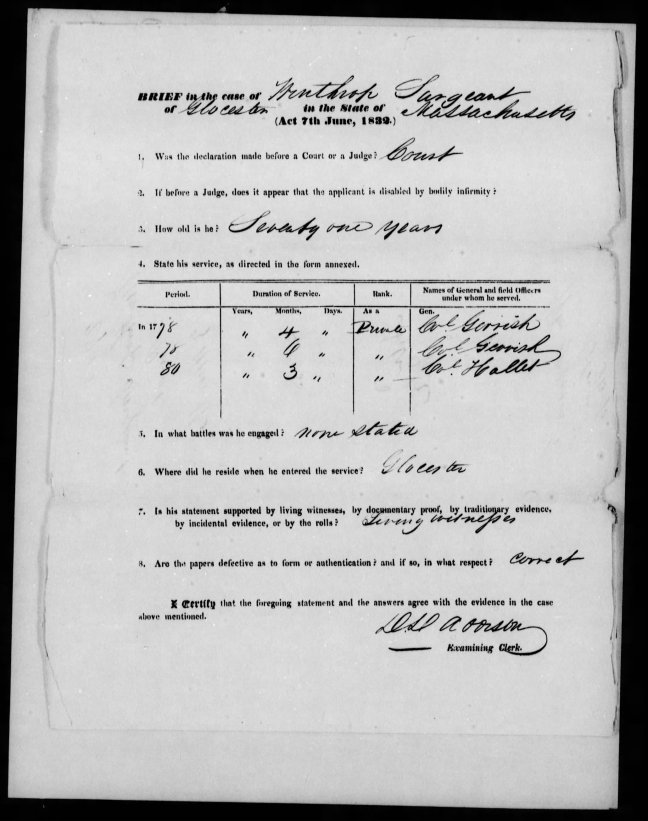 BRIEF in the case of Winthrop Sargeant
of Glocester in the State of Massachusetts
(Act 7th June, 1832.)
1. Was the declaration made before a Court or a Judge? Court
2. If before a Judge, does it appear that the applicant is disabled by bodily infirmity?
3. How old is he? Seventy one years
4. State his service, as directed in the form annexed.
Period. Duration of Service. Rank. Names of General and field Officers
under whom he served.
Years, Months, Days. As a Gen.
In 1778 " 4 " Private Col Gerrish
78 " 6 " " Col. Gerrish
80 " 3 " " Col. Hallet
5. In what battles was he engaged? none stated
6. Where did he reside when he entered the service? Glocester
7. Is his statement supported by living witnesses, by documentary proof, by traditionary evidence,
by incidental evidence, or by the rolls? Living witnesses
8. Are the papers defective as to form or authentication? and if so, in what respect? correct
I Certify that the foregoing statement and the answers agree with the evidence in the case
above mentioned.
Addison
Examining Clerk.